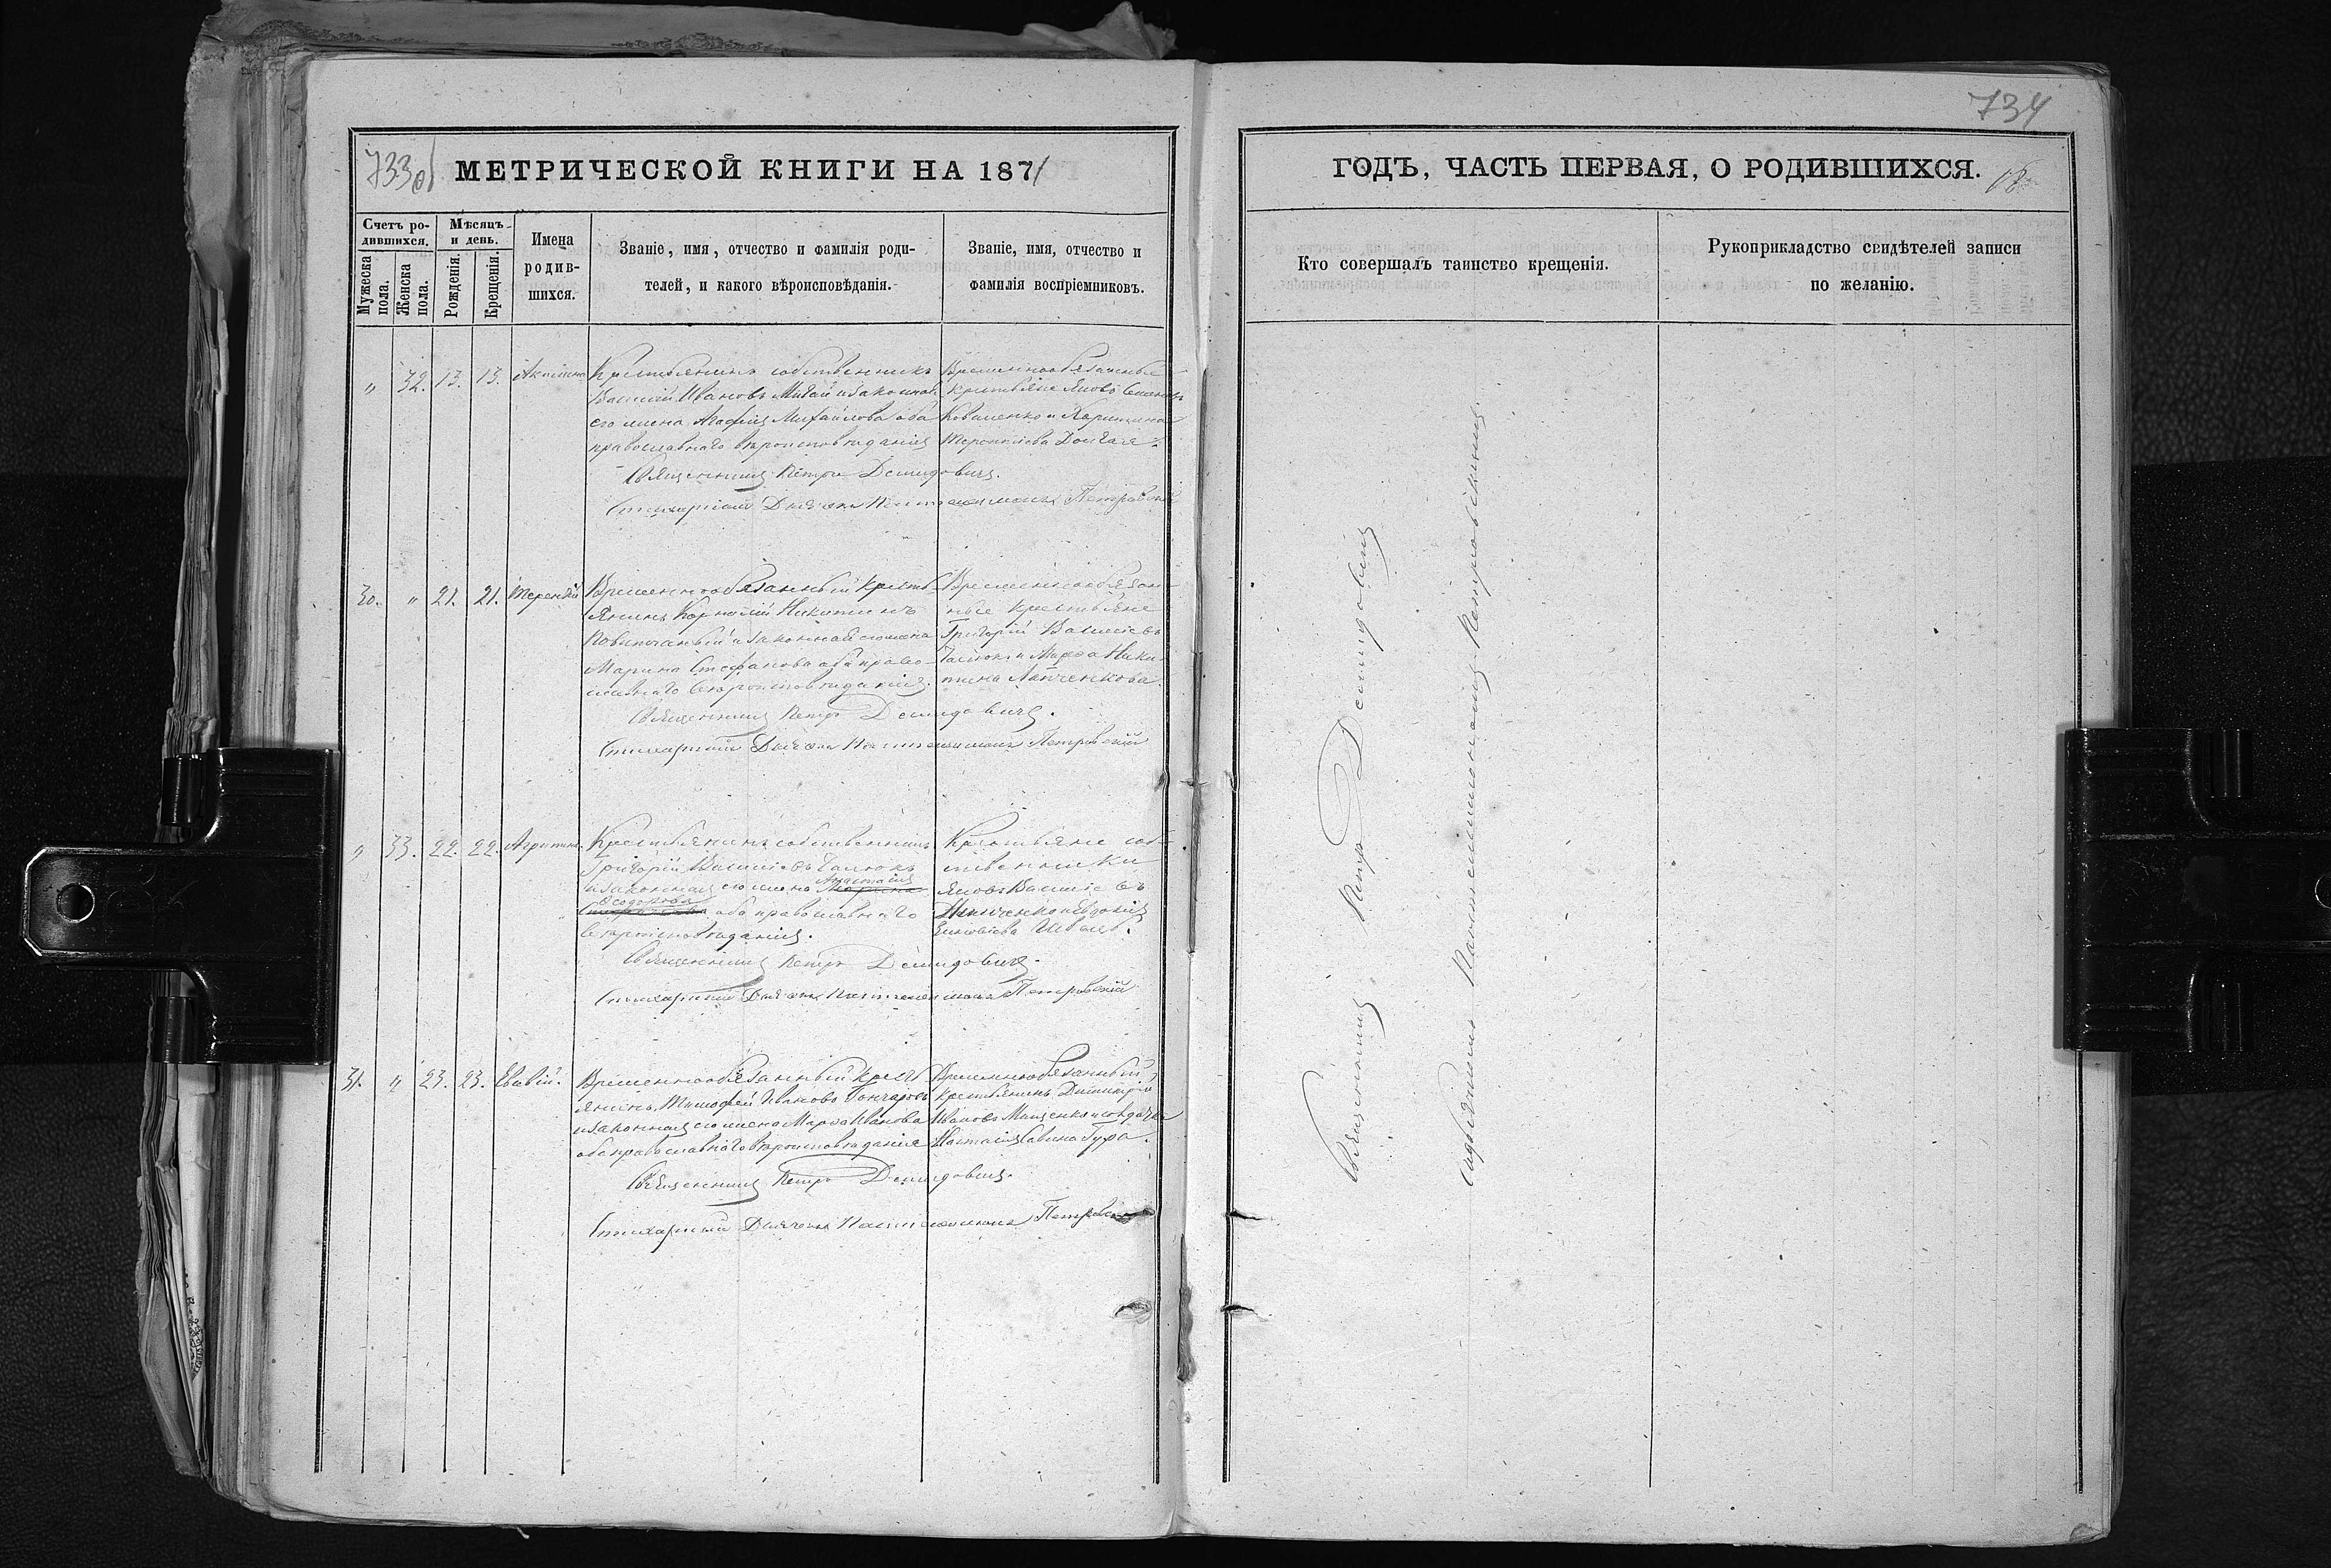 733об
МЕТРИЧЕСКОЙ КНИГИ НА 1871
Счетъ ро-
дившихся.
Мѣсяцъ
и день.
Мужеска
пола.
Женска
пола.
Рожденія.
Крещенія.
Имена
родив-
шихся.
Званіе, имя, отчество и фамилія роди-
телей, и какого вѣроисповѣданія.
Званіе, имя, отчество и
фамилія воспріемниковъ.
„ 32. 13. 13.
Крестьянинъ собственникъ
Василій Ивановъ и законная
его жена Агафія Михайлова оба
православнаго вѣроисповѣданія
Временнообязанные
крестьяне Яковъ
Коваленко и
Священникъ Петръ Демидовичъ.
Стихарный Дьячекъ Пантелеимонъ Петровскій
30. „ 21. 21. Терентій
Временнообязанный кресть-
янинъ Корнилій Никитинъ
и законная его жена
Марина Стефанова оба право-
славнаго вѣроисповѣданія.
Временнообязан-
ные крестьяне
Григорій Василіевъ
и Марѳа Ники-
тина Лапченкова.
Священникъ Петръ Демидовичъ.
Стихарный Дьячекъ Пантелеимонъ Петровскій
„ 33. 22. 22. Агрипина.
Крестьянинъ собственникъ
Григорій Василіевъ Галюкъ
Анастасія
и законная его жена Марина
Ѳеодорова
Стефанова оба православнаго
вѣроисповѣданія.
Крестьяне соб-
ственники
Яковъ Василіевъ
и Евдокія
Священникъ Петръ Демидовичъ.
Стихарный Дьячекъ Пантелеимонъ Петровскій
31. „ 23. 23. Евсевій.
Временнообязанный крест
янинъ Тимофей Ивановъ Гончаровъ
и законная его жена Марѳа Иванова
оба православнаго вѣроисповѣданія
Временнообязанный
крестьянинъ Димитрій
Ивановъ Мищенко и солдатка
Настасія Савина Гура.
Священникъ Петръ Демидовичъ.
Стихарный Дьячекъ Пантелеимонъ Петровскій
734
ГОДЪ, ЧАСТЬ ПЕРВАЯ, О РОДИВШИХСЯ.
Кто совершалъ таинство крещенія.
Рукоприкладство свидѣтелей записи
по желанію.
Священникъ Петръ Демидовичъ
съ дьячкомъ Пантелеимономъ Петровскимъ.